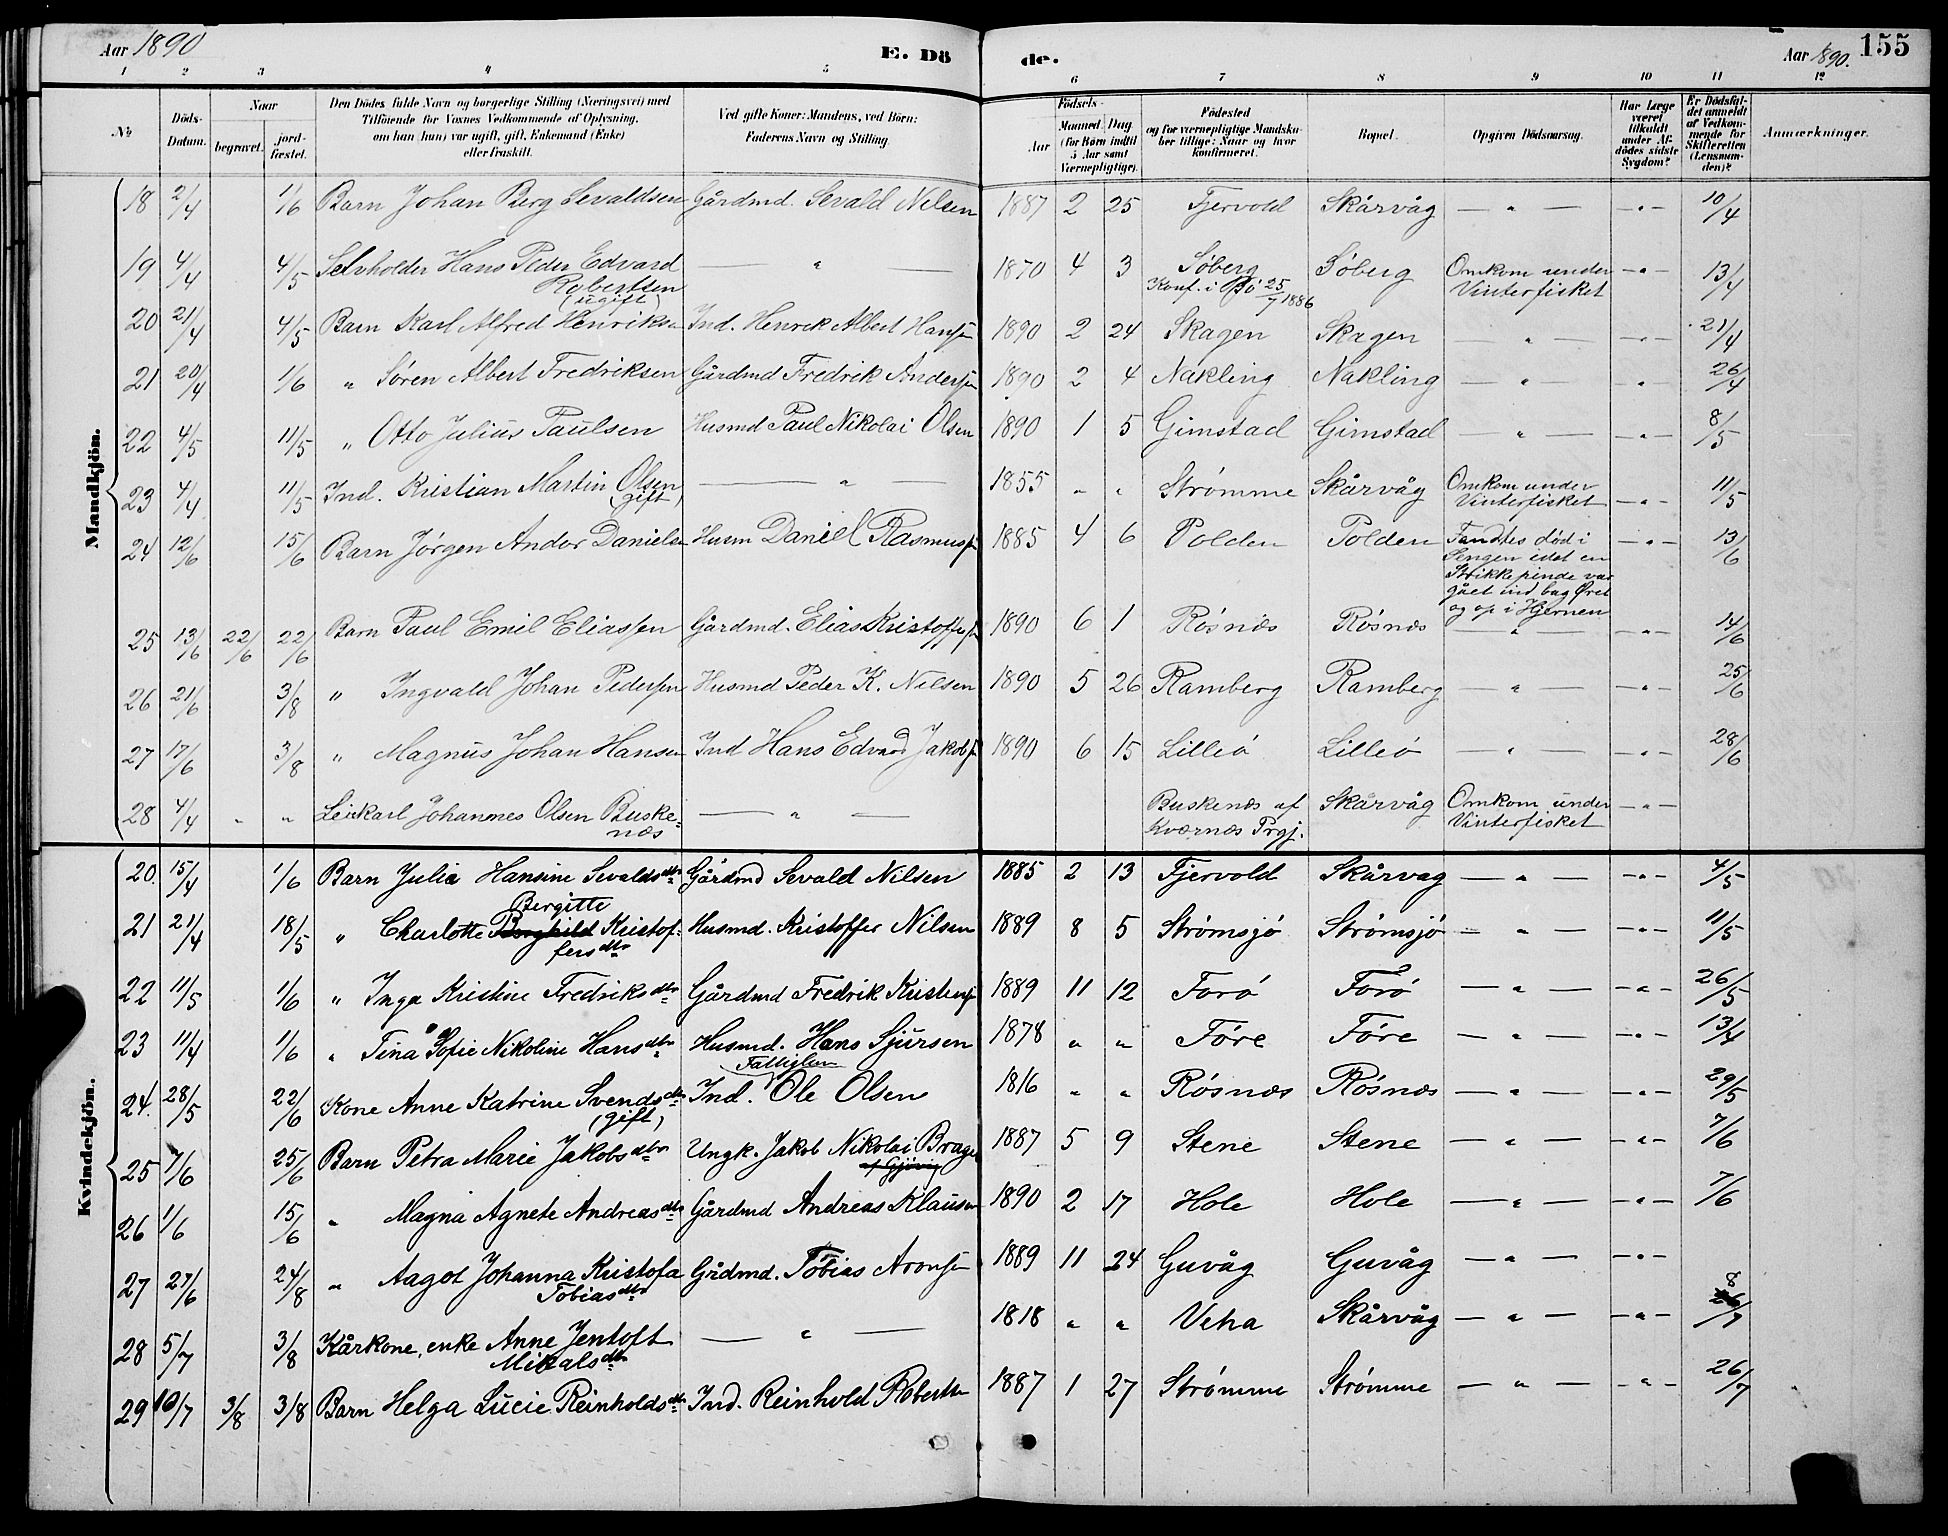 Aar 1890 E. Dö de. Aar 1890. 155
1 2 3 4 5 6 7 8 9 10 11 12
№ Döds-Datum. Naar begravet. jord-fæstet. Den Dödes fulde Navn og borgerlige Stilling (Næringsvei) med Tilföiende for Voxnes Vedkommende af Oplysning, om han (hun) var ugift, gift, Enkemand (Enke) eller fraskilt. Ved gifte Koner: Mandens, ved Börn: Faderens Navn og Stilling. Födsels- Aar Maaned Dag (for Börn indtil 5 Aar samt Værnepligtige). Födested og for værnepligtige Mandska-ber tillige: Naar og hvor konfirmeret. Bopæl. Opgiven Dödsaarsag. Har Læge været tilkaldt under Af-dödes sidste Sygdom? Er Dödsfal-det anmeldt af Vedkom-mende for Skifteretten (Lensman-den)? Anmærkninger.
Mandkjön.
18 2/4 1/6 Barn Johan Berg Sevaldsen Gårdmd. Sevald Nilsen 1887 2 25 Fjervold Skårvåg — " — — " — 10/4
19 4/4 4/5 Selvholder Hans Peder Edvard Robertsen (ugift) — " — 1870 4 3 Söberg Konf. i Bö 25/7 1886 Söberg Omkom under Vinterfisket — " — 13/4
20 21/4 4/5 Barn Karl Alfred Henriksen Ind. Henrik Albert Hansen 1890 2 24 Skagen Skagen — " — — " — 21/4
21 20/4 1/6 " Sören Albert Fredriksen Gårdmd Fredrik Andersen 1890 2 4 Nakling Nakling — " — " 26/4
22 4/5 11/5 " Otto Julius Paulsen Husmd Paul Nikolai Olsen 1890 1 5 Gimstad Gimstad — " — — " — 8/5
23 4/4 11/5 Ind. Kristian Martin Olsen (gift) — " — 1855 " " Strømme Skårvåg Omkom under Vinterfisket — " — 11/5
24 12/6 15/6 Barn Jørgen Andor Danielsen Husm Daniel Rasmussen 1885 4 6 Polden Polden Fandtes död i Sengen idet en Strikkepinde var gået ind bag Øret og op i Hjernen — " — 13/6
25 13/6 22/6 22/6 Barn Paul Emil Eliassen Gårdmd. Elias Kristoffersen 1890 6 1 Rösnæs Rösnæs — " — — " — 14/6
26 21/6 3/8 " Ingvald Johan Pedersen Husmd Peder K. Nilsen 1890 5 26 Ramberg Ramberg — " — — " — 25/6
27 17/6 3/8 " Magnus Johan Hansen Ind Hans Edvard Jakobsen 1890 6 15 Lilleö Lilleö — " — — " — 28/6
28 4/4 " " Leiekarl Johannes Olsen Buske=næs — " — Buskenæs af Kværnæs Prgj. Skårvåg Omkom under Vinterfisket — " —
Kvindekjön.
20. 15/4 1/6 Barn Julie Hansine Sevaldsdtr Gårdmd Sevald Nilsen 1885 2 13 Fjervold Skårvag — " — — " — 4/5
21 21/4 18/5 " Charlotte Borghild Bergitte Kristof=fersdtr Husmd. Kristoffer Nilsen 1889 8 5 Strømsjö Strømsjö — " — — " — 11/5
22 11/5 1/6 " Inga Kristine Fredriksdtr Gårdmd Fredrik Kristensen 1889 11 12 Forö Forö — " — — " — 26/5
23 11/4 1/6 " Tina Sofie Nikoline Hansdtr Husmd. Hans Sjursen 1878 " " Före Före — " — — " — 13/4
24. 28/5 22/6 Kone Anne Katrine Svendsdtr (gift) Fattiglem Ind. Ole Olsen 1816 " " Rösnæs Rösnæs — " — — " — 29/5
25 7/6 25/6 Barn Petra Marie Jakobsdtr Ungk. Jakob Nikolai Brage af Gjövig 1887 5 9 Stene Stene — " — — " — 7/6
26 1/6 15/6 " Magna Agnete Andreasdtr Gårdmd Andreas Klausen 1890 2 17 Hole Hole — " — — " — 7/6
27 27/6 24/8 " Aagot Johanna Kristofa Tobiasdtr Gådmd. Tobias Aronsen 1889 11 24 Guvåg Guvåg — " — — " —
28 5/7 3/8 Kårkone, enke Anne Jentoft Mikalsdtr — " — 1818 " " Veha Skårvåg — " — — " — 8/7
29 10/7 3/8 3/8 Barn Helga Lucie Reinholdsdtr Ind. Reinhold Robertsen 1887 1 27 Strømme Strömme — " — — " — 26/7